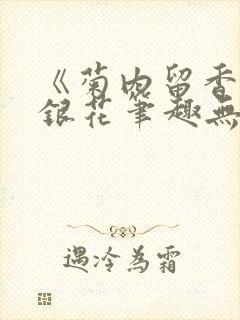 《菊内留香
銀花筆趣無
遇冷為霜